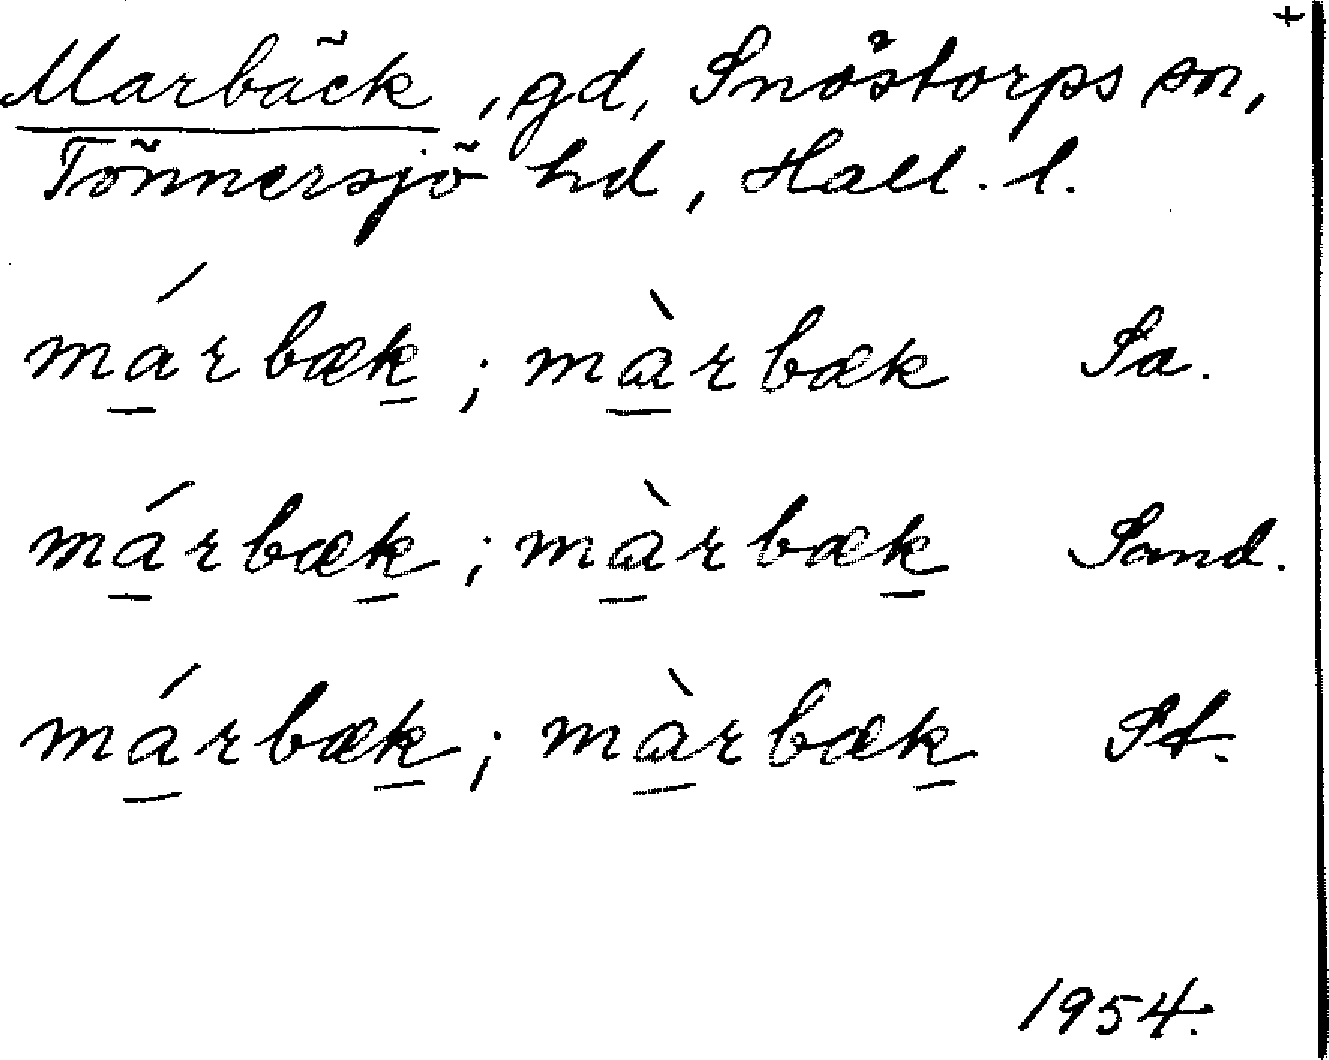 +
Marbäck, gd, Snöstorps sn,
Tönnersjö hd, Hall. l.
márbæk; màrbæk Sa.
márbæk; màrbæk Sand.
márbæk; màrbæk St.
1954.